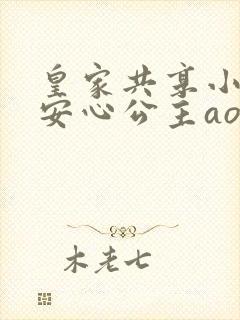 皇家共享小
安心公主ao
木老七